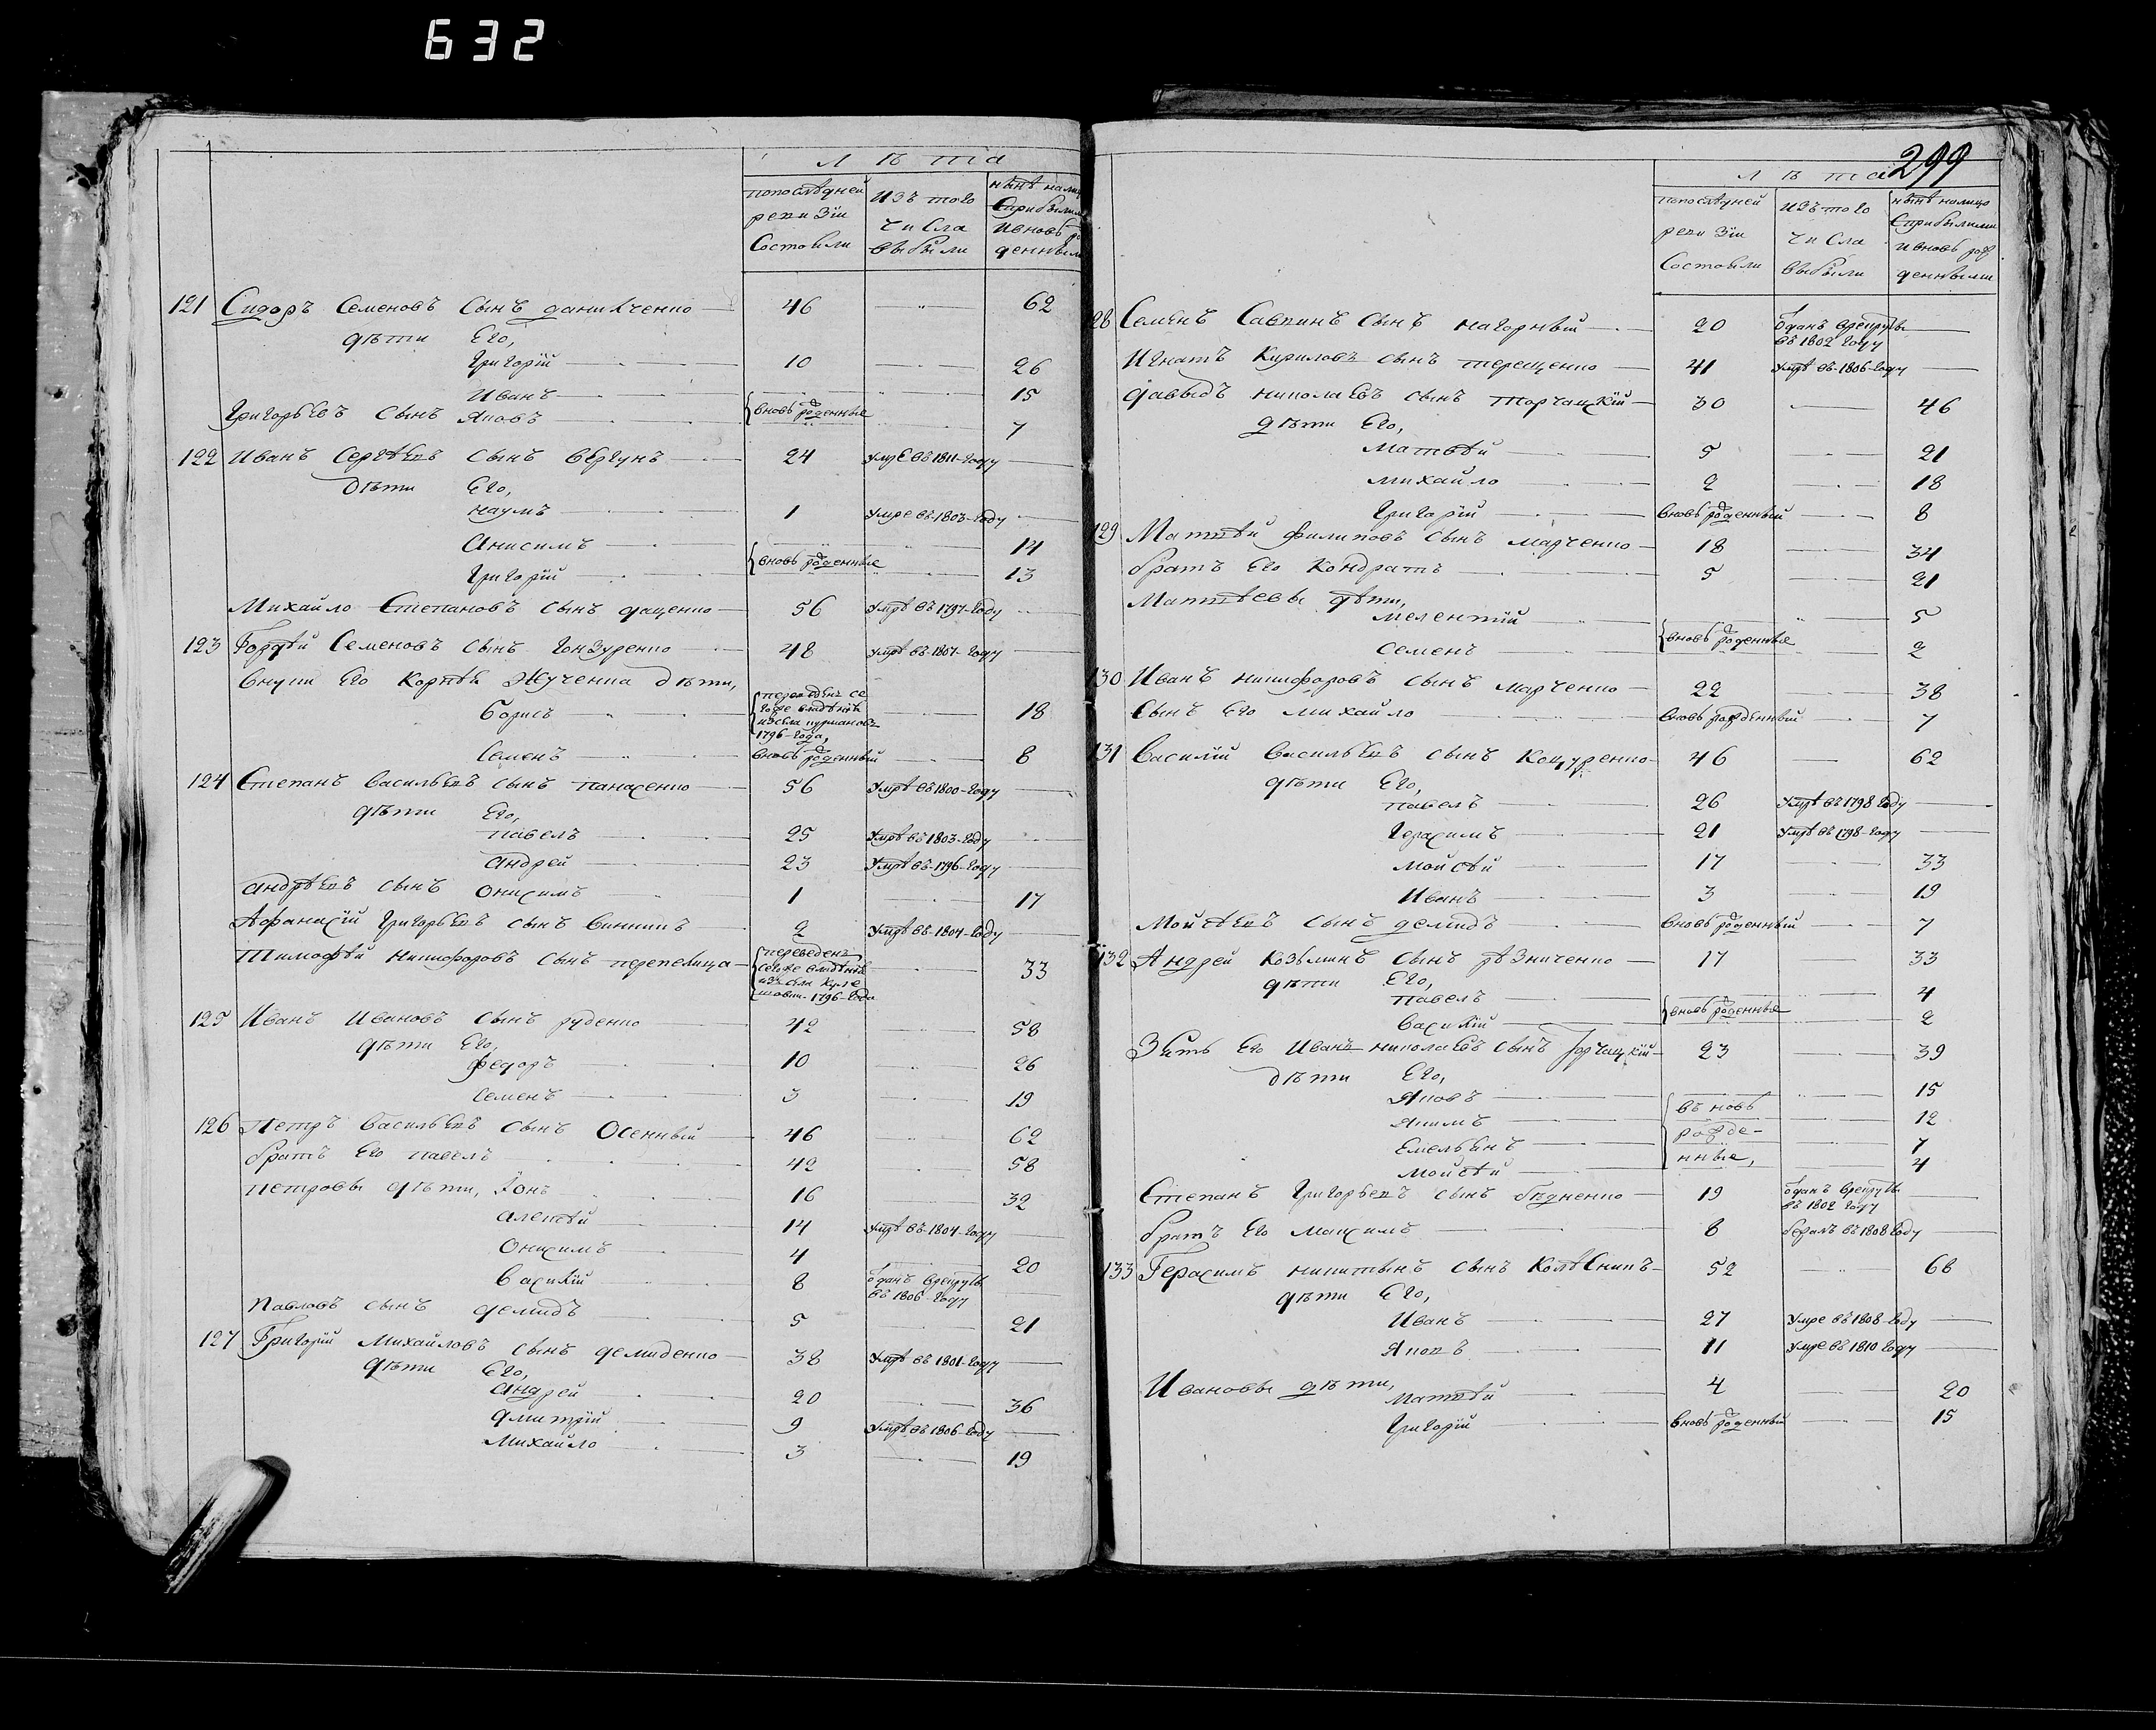 632
Лѣта
попослѣдней ревизiи Состояли
Изъ того числа выбыли
нынѣ на лицо Сприбылыми ивновь рожденными
121 Сидоръ Семеновъ Сынъ данилченко 46 62
дѣти Его,
Григорiй 10 26
Иванъ 15
Григорьевъ Сынъ Яковъ вновь рожденные 7
122 Иванъ Сергѣевъ Сынъ вергунъ 24 умре въ 1811 году
дѣти Его,
наумъ 1 умре въ 1803 году
Анисимъ 14
Григорiй вновь рожденные 13
Михайло Степановъ Сынъ даценко 56 умре въ 1797 году
123 Гордѣй Семеновъ Сынъ Гонзуренко 48 умре въ 1807 году
Внуки Его Корнѣя Жученка дѣти,
Борисъ переведенъ Сего же владѣнiя изсела 1796 года, 18
Семенъ вновь рожденный 8
124 Степанъ Васильевъ Сынъ панасенко 56 умре въ 1800 году
дѣти Его,
павелъ 25 умре въ 1803 году
андрей 23 умре въ 1796 году
андрѣевъ Сынъ Онисимъ 1 17
Афанасiй Григорьевъ Сынъ Винникъ 2 умре въ 1804 году
Тимофѣй никифоровъ Сынъ перепелица переведенъ Сегоже владѣнiя изъ села 1796 года 33
125 Иванъ Ивановъ Сынъ руденко 42 58
дѣти Его,
Федоръ 10 26
Семенъ 3 19
126 Петръ Васильевъ Сынъ Осеннѣй 46 62
братъ Его павелъ 42 58
петровы дѣти, Iонъ 16 32
алексѣй 14 умре въ 1804 году
Онисимъ 4 20
Василiй 8 отданъ Врекруты въ 1806 году
Павловъ Сынъ демидъ 5 21
127 Григорiй Михайловъ Сынъ демиденко 38 умре въ 1801 году
дѣти Его,
андрей 20 36
дмитрiй 9 умре въ 1806 году
Михайло 3 19
299
Лѣта
попослѣдней ревизiи Состояли
Изъ того числа выбыли
нынѣ налицо Сприбылыми ивновь рожденными
128 Семенъ Савкинъ Сынъ нагорный 20 отданъ Врекруты въ 1802 году
Игнатъ Кириловъ Сынъ терещенко 41 умре въ 1806 году
давыдъ николаевъ Сынъ Торчацкiй 30 46
дѣти Его,
Матвѣй 5 21
михайло 2 18
Григорiй вновь рожденный 8
129 Матвѣй филиповъ Сынъ марченко 18 34
братъ Его Кондратъ 5 21
Матвѣевы дѣти,
мелентiй 5
Семенъ вновь рожденные 2
130 Иванъ никифоровъ Сынъ марченко 22 38
Сынъ Его михайло вновь рожденный 7
131 Василiй Васильевъ Сынъ Коцуренко 46 62
дѣти Его,
павелъ 26 умре въ 1798 году
Герасимъ 21 умре въ 1798 году
мойсѣй 17 33
Иванъ 3 19
Мойсѣевъ Сынъ демидъ вновь рожденный 7
132 Андрей Козьминъ Сынъ рѣзниченко 17 33
дѣти Его,
павелъ 4
Василiй вновь рожденные 2
Зять Его Иванъ николаевъ Сынъ Торчацкiй 23 39
дѣти Его,
Яковъ 15
якимъ въновь 12
Емельянъ рожде- 7
мойсѣй нные, 4
Степанъ Григорьевъ Сынъ бѣдненко 19 отданъ Врекруты въ 1802 году
братъ Его Максимъ 8 бежалъ въ 1808 году
133 Герасимъ никитинъ Сынъ Колѣсникъ 52 68
дѣти Его,
Иванъ 27 умре въ 1808 году
Яковъ 11 умре въ 1810 году
Ивановы дѣти,
Матвѣй 4 20
Григорiй вновь рожденный 15